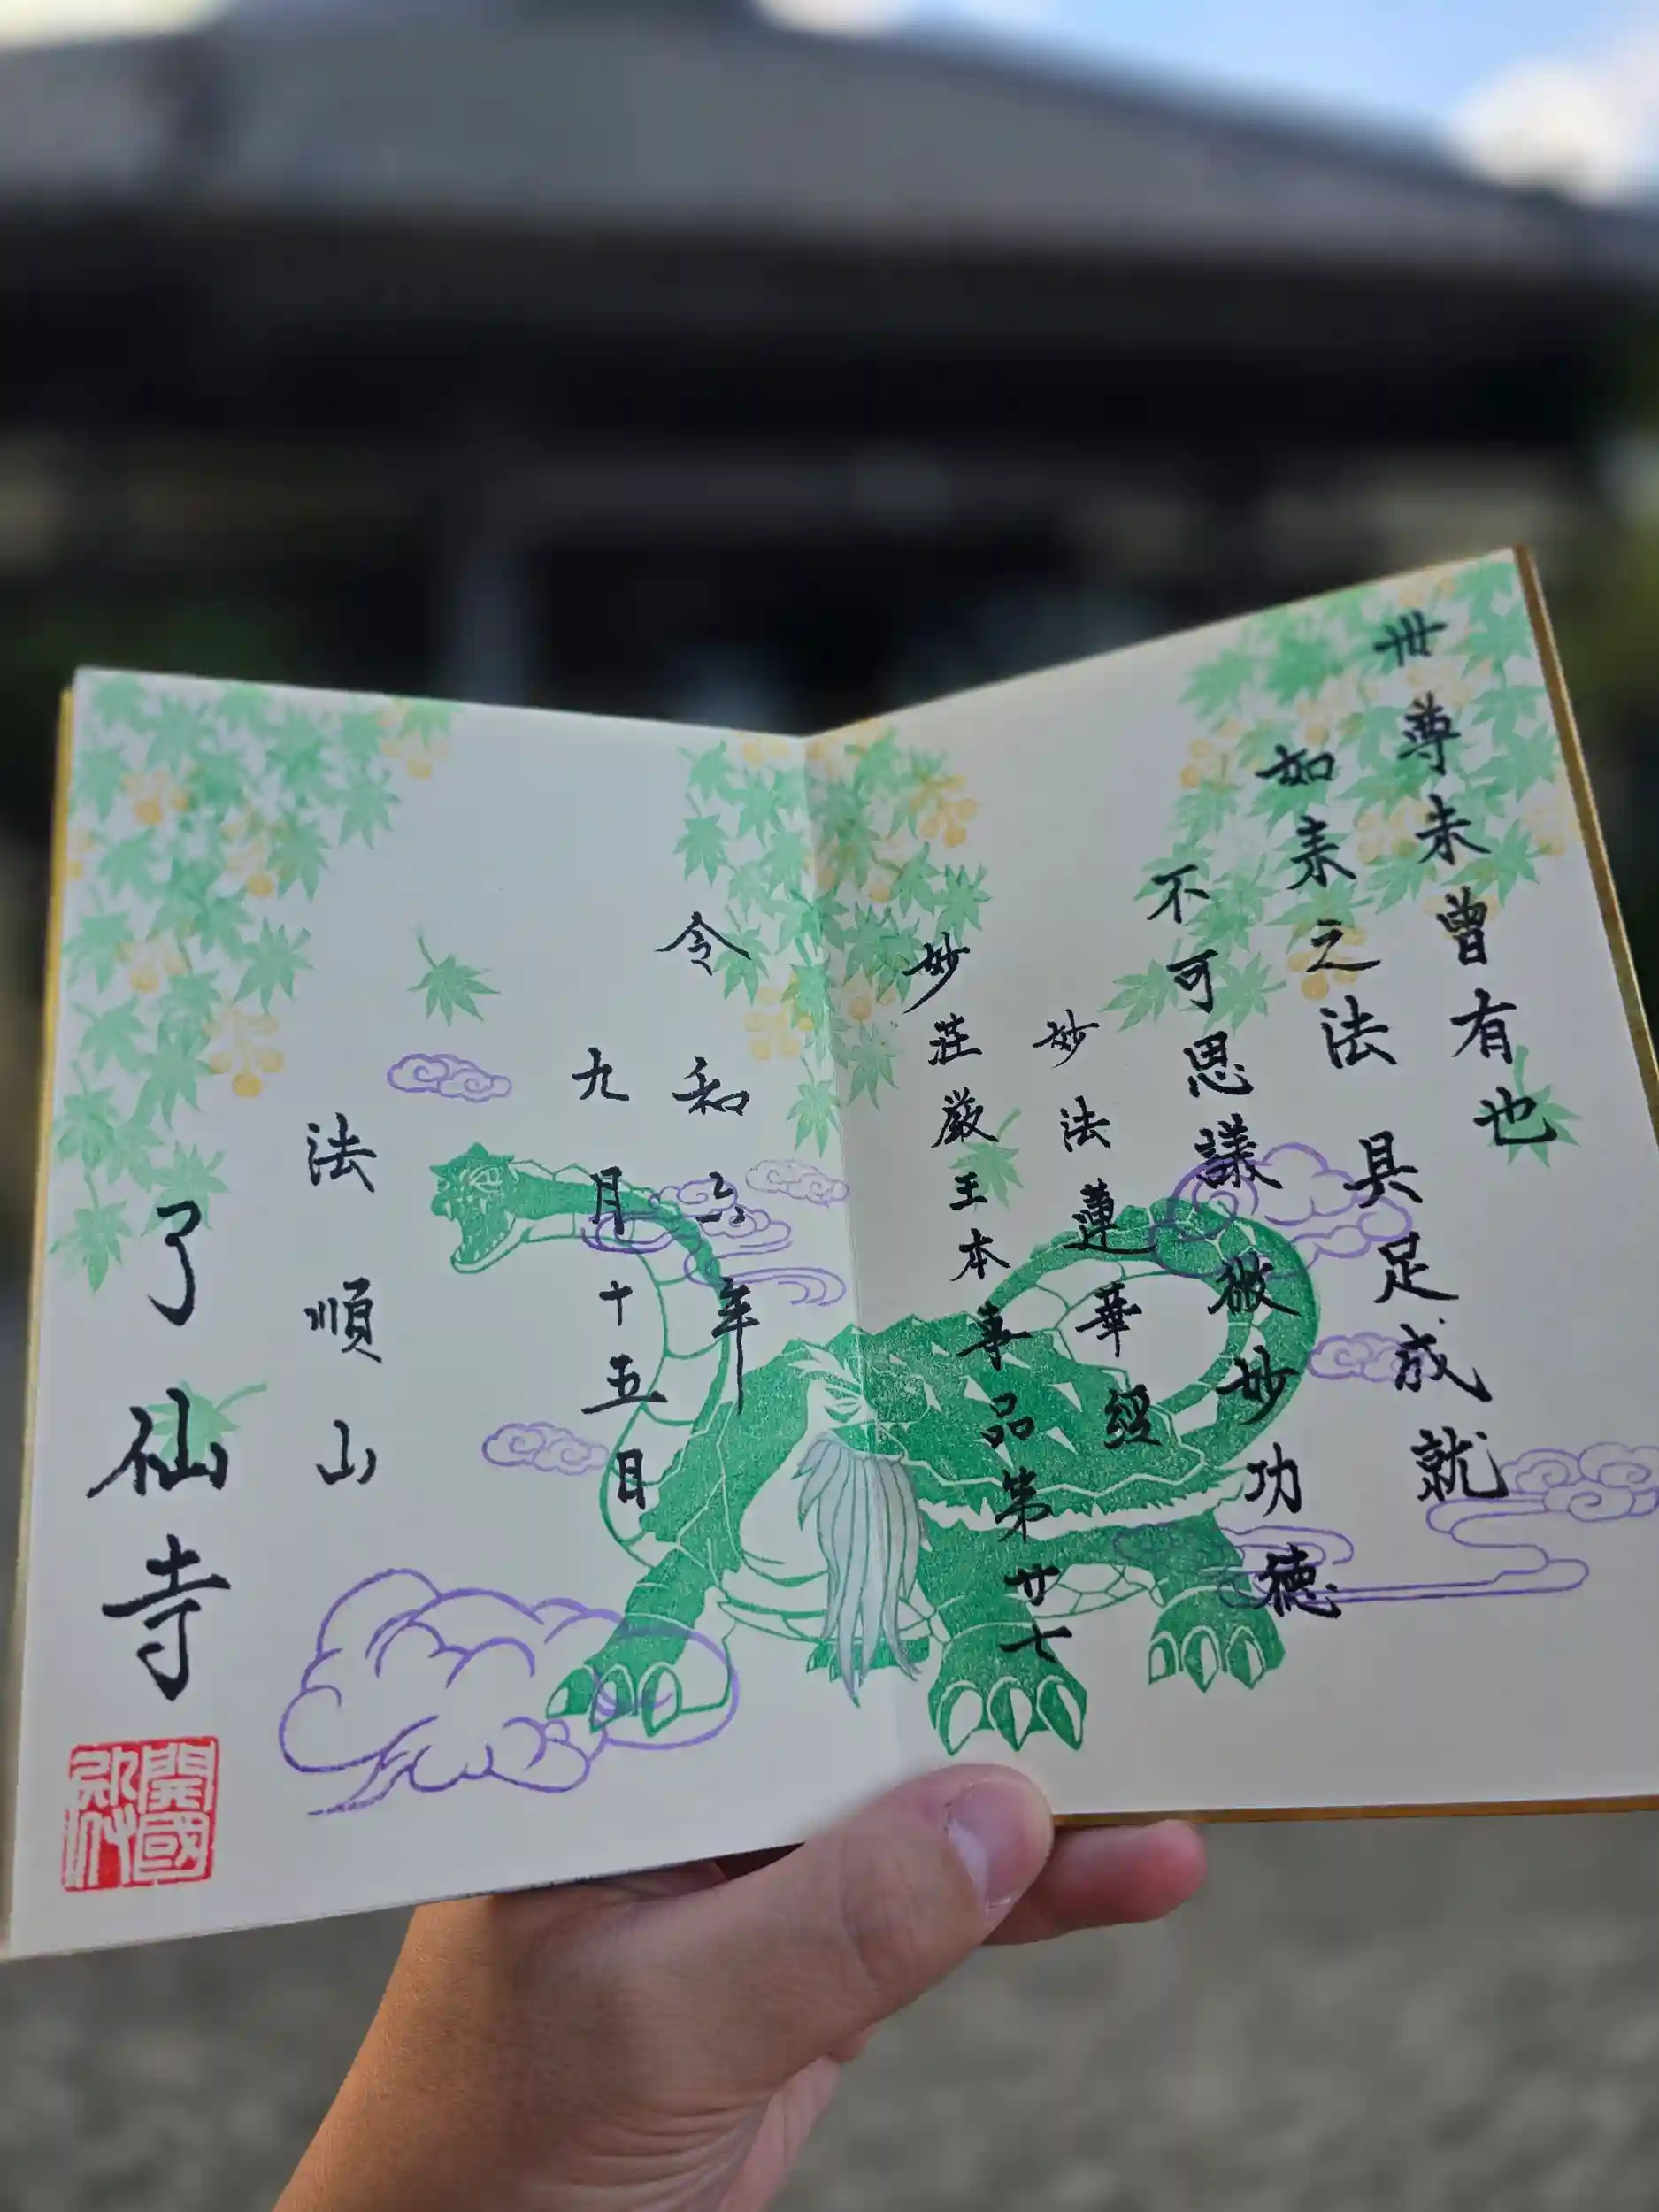 丗尊未曾有也
如来之法具足成就
不可思議微妙功徳
妙法蓮華經
妙荘厳王本事品第廿七
令和六年
九月十五日
法順山
了仙寺
開國